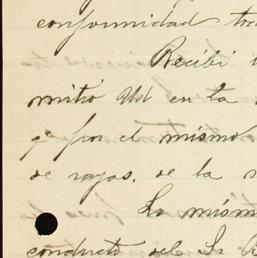 conformidad tod
Recibí
mitió Ud en la
qe por el mismo
de rayos. de la s
La mism
conducto del Sr